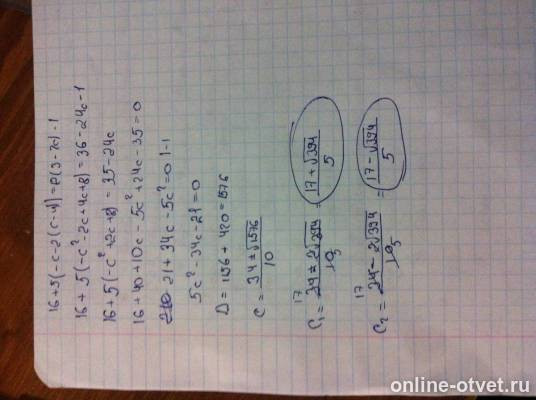 16+5(-c-2(c-4)=P(3-7c)-1
16+5(-c²-2c+4c+8)=36-24c-1
16+5(-c²+2c+8)=35-24c
16+40+10c-5c²+24c-35=0
21+34c-5c²=0 |-1
5c²-34c-21=0
D=1156+420=1576
C=34±√1576/10
C₁=34+2√394/10=17+√394/5
17
5
C₂=34-2√394/10=17-√394/5
17
5
online-otvet.ru